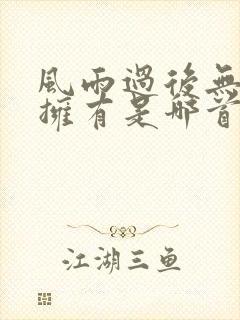 風雨過後無
擁有是那首
江湖三鱼